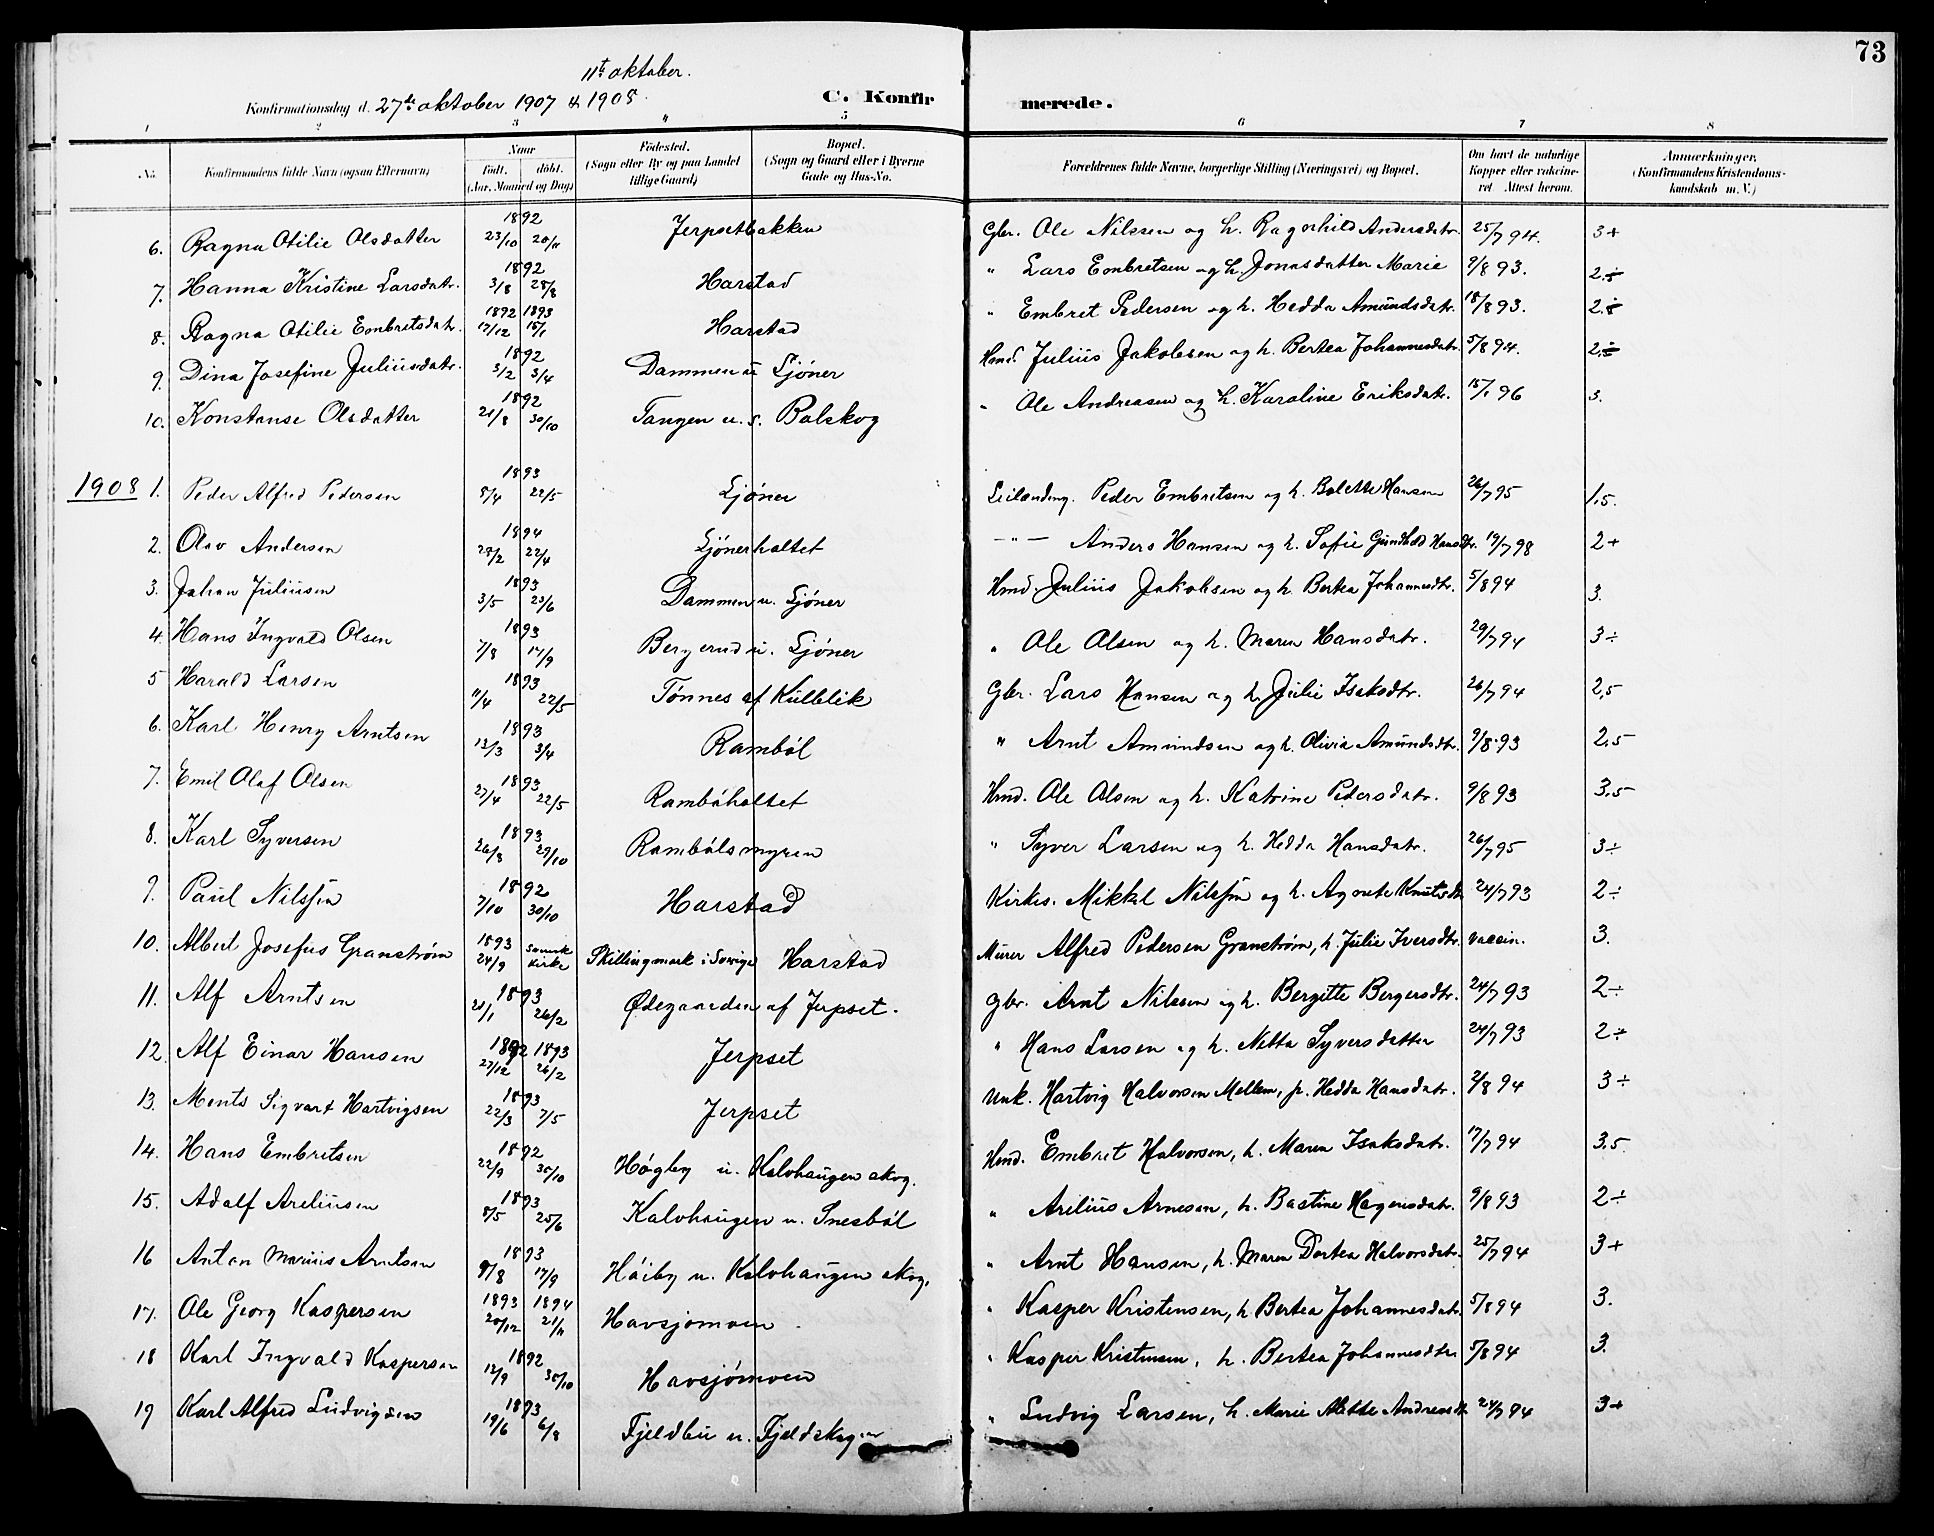 73
11te oktober.
Konfirmationsdag d. 27de oktober 1907 & 1908. C. Konfir merede.
1 2 3 4 5 6 7 8
No. Konfirmandens fulde Navn (ogsaa Efternavn) Naar født. døbt. (Aar, Maaned og Dag) Fødested. (Sogn eller By og paa Landet tillige Gaard) Bopæl. (Sogn og Gaard eller i Byerne Gade og Hus-No. Forældrenes fulde Navne, borgerlige Stilling (Næringsvei) og Bopæl. Om havt de naturlige Kopper eller vakcineret. Attest herom. Anmærkninger. (Konfirmandens Kristendomskundskab m. V.)
6. Ragna Otilie Olsdatter 1892 23/10 20/11 Jerpsetbakken Gbr. Ole Nilssen og h. Ragnhild Andersdatr. 25/7 94. 3+
7. Hanna Kristine Larsdatr. 1892 3/8 28/8 Harstad " Lars Embretsen og h. Jonasdatter Marie 9/8 93. 2.5
8. Ragna Otilie Embretsdatr. 1892 1893 17/12 15/1 Harstad " Embret Pedersen og h. Hedda Amundsdatr. 18/8 93. 2.5
9. Dina Josefine Juliusdatr. 1892 3/2 3/4 Dammen u Sjöner Hmd. Julius Jakobsen og h. Bertea Johannesdatr. 5/8 94. 2÷
10. Konstanse Olsdatter 1892 21/8 30/10 Tangen u. s. Bolskog " Ole Andreasen og h. Karoline Eriksdatr. 18/1 96 3.
1908 1. Peder Alfred Pedersen 1893 8/4 22/5 Sjöner Leilænding. Peder Embretsen og h. Bolette Hansen 26/7 95 1,5.
2. Olav Andersen 1894 28/2 22/4 Sjönerholtet —"— Anders Hansen og h. Sofie Gundhild Hansdtr. 19/7 98 2+
3. Johan Juliusen 1893 3/5 23/6 Dammen u. Sjöner Hmd. Julius Jakobsen og h. Bertea Johannesdtr. 5/8 94 3.
4. Hans Ingvald Olsen 1893 7/8 17/9 Bergerud u. Sjöner " Ole Olsen og h. Maren Hansdatr. 29/7 94 3÷
5 Harald Larsen 1893 11/4 22/5 Tónnes af Kulblik Gbr. Lars Hansen og h. Julie Isaksdtr. 26/7 94 2,5
6. Karl Henry Arntsen 1893 13/3 3/4 Ramböl " Arnt Amundsen og h. Olivia Amundsdtr. 9/8 93 2.5
7. Emil Olaf Olsen 1893 27/4 22/5 Ramböholtet Hmd. Ole Olsen og h. Katrine Pedersdatr. 9/8 93 3.5
8. Karl Syversen 1893 26/8 29/10 Rambölsmyren " Syver Larsen og h. Hedda Hansdatr. 26/7 95 3÷
9. Paul Nilssen 1892 7/10 30/10 Harstad Kirkes. Mikkel Nilssen og h. Agnete Knutsdtr 24/7 93 2÷
10. Albert Josefus Granström 1893 24/9 svensk kirke Skillingmark i Sverige Harstad Murer Alfred Pedersen Granström, h. Julie Iversdtr. vaccin. 3.
11. Alf Arntsen 1893 21/1 26/2 Ødegaarden af Jerpset. Gbr. Arnt Nilssen og h. Bergitte Bergersdtr. 24/7 93 2÷
12. Alf Einar Hansen 1892 1893 27/12 26/2 Jerpset " Hans Larsen og h. Netta Syversdatter 24/7 93 2÷
13. Ments Sigvart Hartvigsen 1893 22/3 7/5 Jerpset Unk. Hartvig Halvorsen Mellem, p. Hedda Hansdatr. 2/8 94 3÷
14. Hans Embretsen 1892 22/9 30/10 Högby u. Kalvhaugen skog. Hmd. Embret Halvorsen, h. Maren Isaksdatr. 17/7 94 3.5
15. Adolf Areliusen 1893 8/5 25/6 Kalvhaugen u. Snesböl " Arelius Arnesen, h. Bastine Hagensdatr. 9/8 93 2÷
16 Anton Marius Arntsen 1893 9/8 17/9 Höiby u. Kalvhaugen skog. " Arnt Hansen, h. Maren Dortea Halvorsdatr. 25/7 94 3+
17. Ole Georg Kaspersen 1893 1894 20/12 21/11 Havsjömoen. " Kasper Kristensen, h. Bertea Johannesdatr. 5/8 94 3.
18 Karl Ingvald Kaspersen 1892 12/9 30/10 Havsjömoen " Kasper Kristensen, h. Bertea Johannesdtr. 5/8 94 3.
19 Karl Alfred Ludvigsen 1893 19/6 6/8 Fjeldbu u. Fjeldskogen " Ludvig Larsen, h. Marie Alette Andreasdtr. 24/7 94 3+